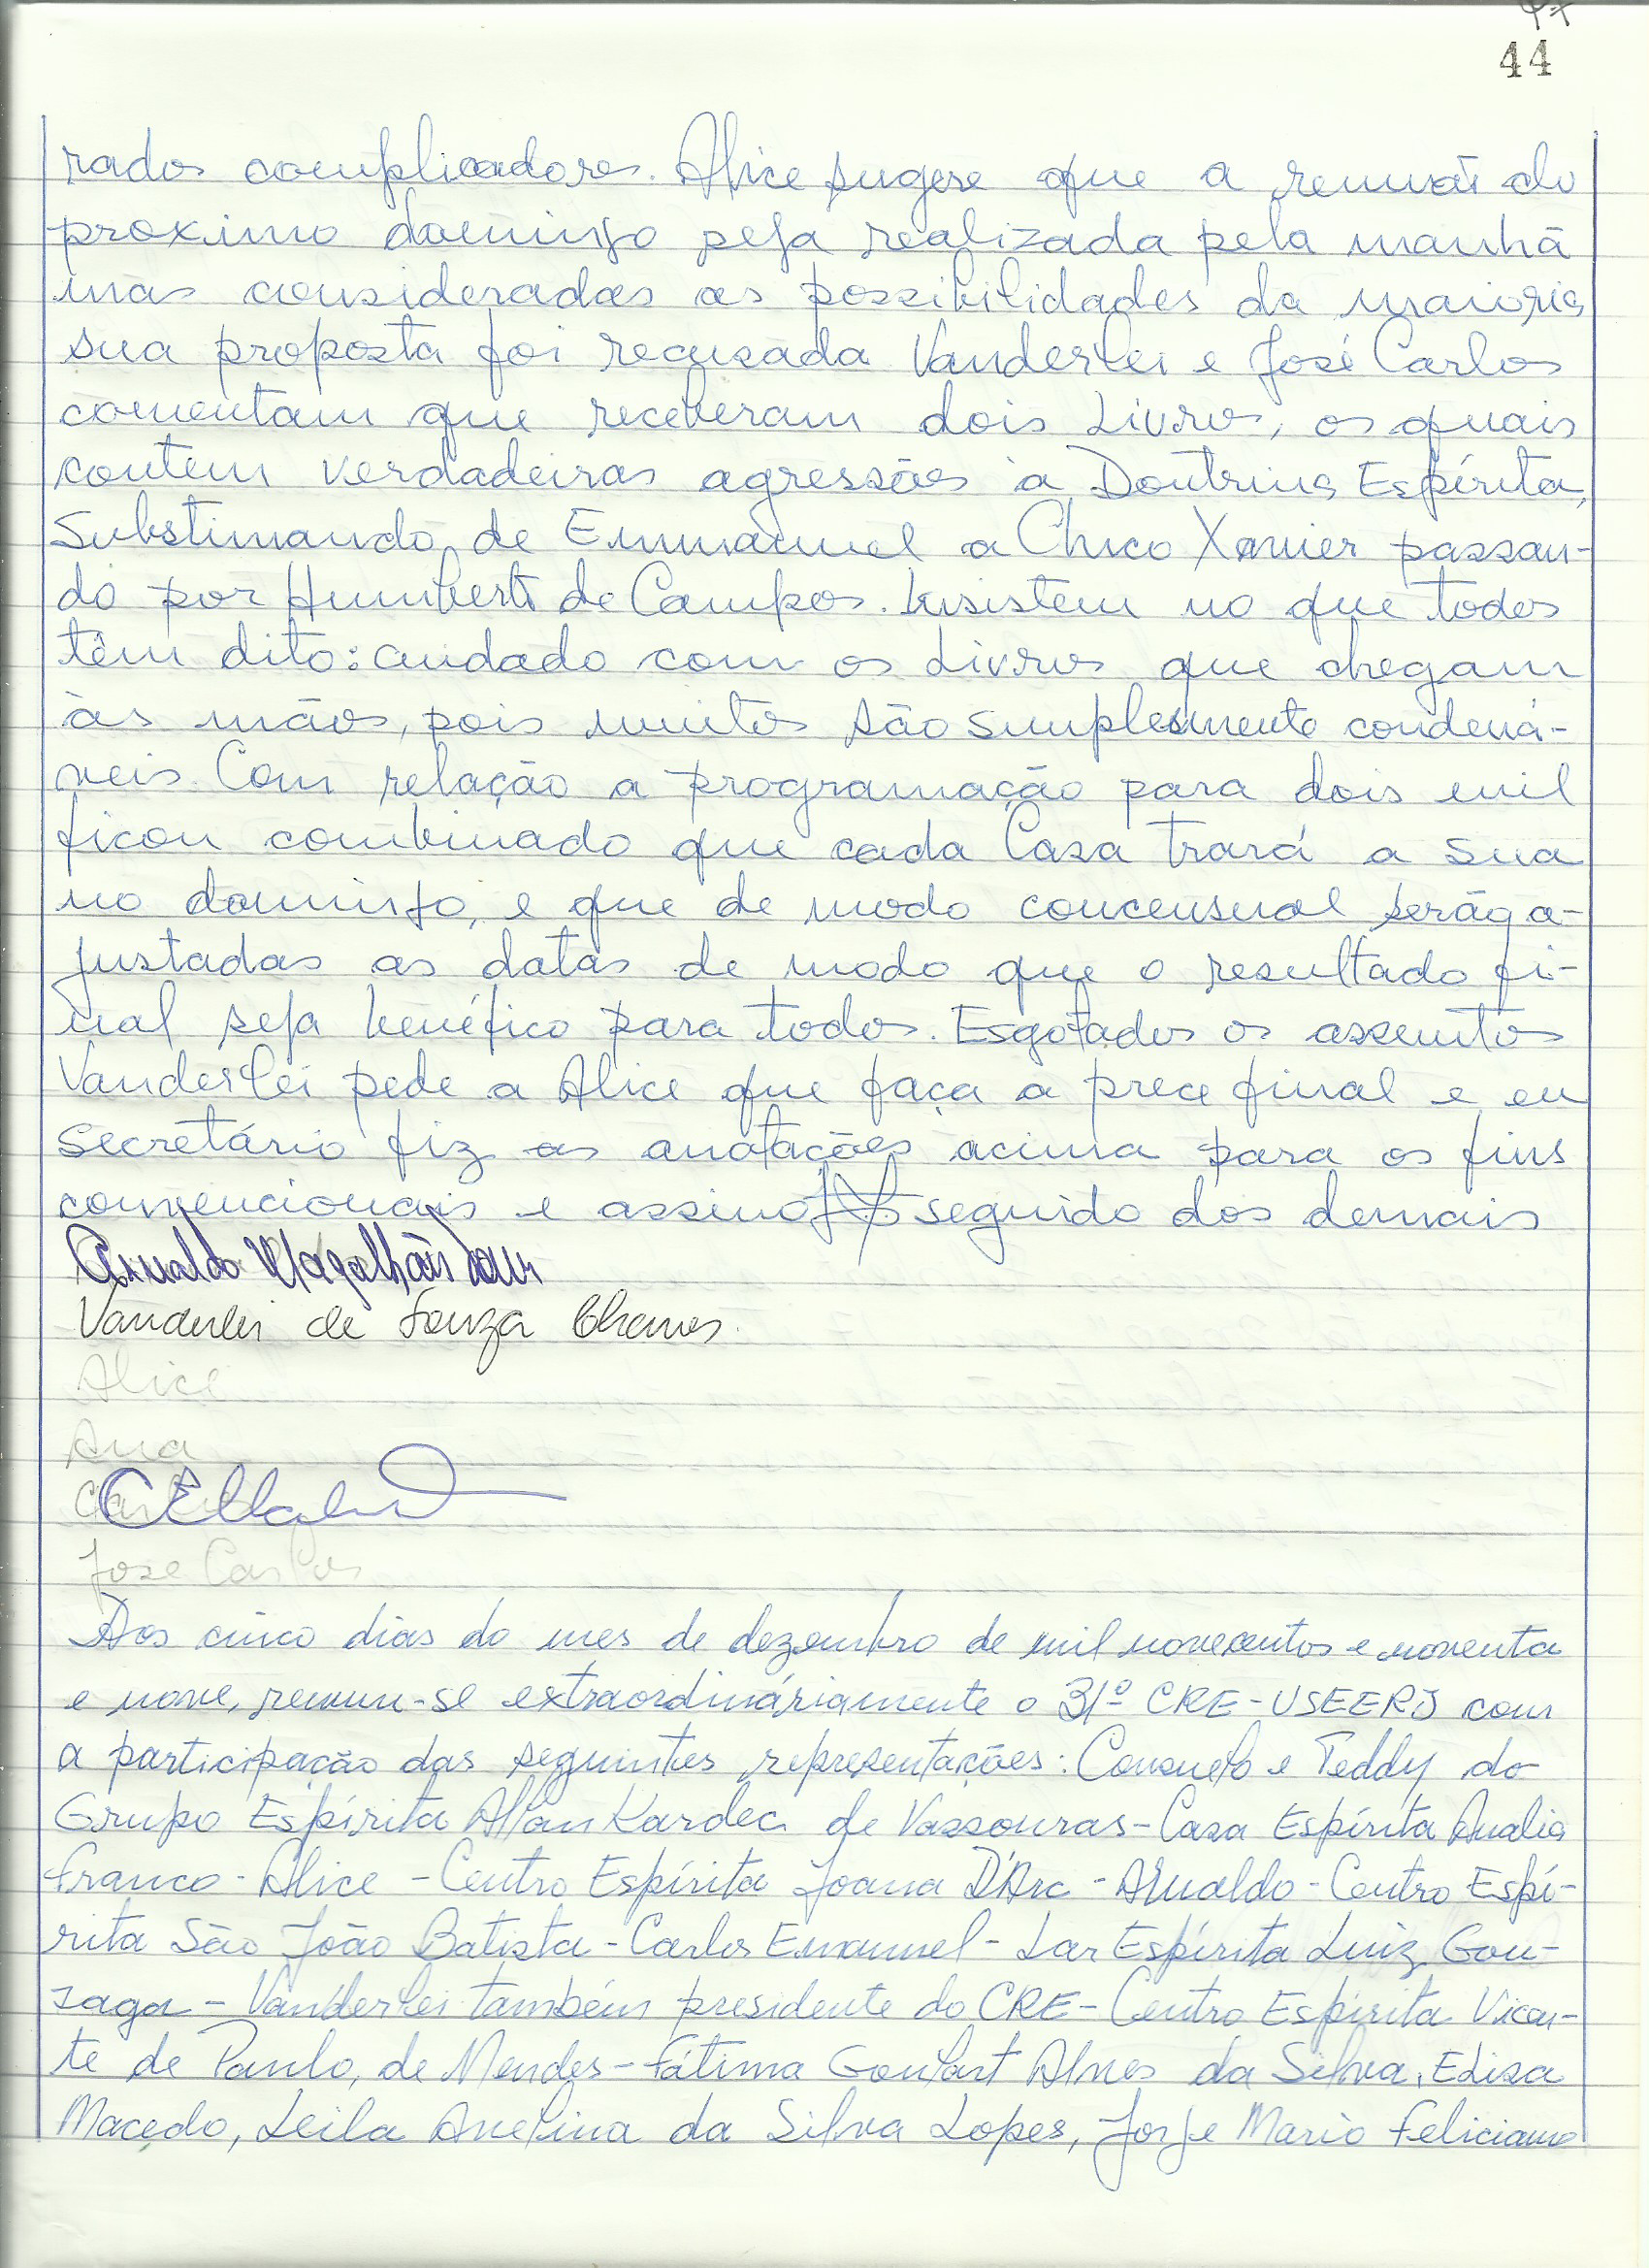 44
rados complicadores. Alice sugere que a reunião do
proximo domingo seja realizada pela manhã
mas consideradas as possibilidades da maioria
sua proposta foi recusada Vanderlei e José Carlos
comentam que receberam dois Livros, os quais
contem verdadeiras agressões à Doutrina Espírita,
Substimando de Emmanuel a Chico Xavier passan-
do por Humberto de Campos. Insistem no que todos
têm dito: cuidado com os Livros que chegam
às mãos, pois muitos são simplesmente condená-
veis. Com relação a programação para dois mil
ficou combinado que cada Casa trará a sua
no domingo, e que de modo concensual serão a-
justadas as datas de modo que o resultado fi-
nal seja benéfico para todos. Esgotados os assuntos
Vanderlei pede a Alice que faça a prece final e eu
secretário fiz as anotações acima para os fins
convencionais e assino seguido dos demais
Arnaldo Magalhães
Vanderlei de Souza Chaves.
Alice
Ana
Carlos
José Carlos
Aos cinco dias do mes de dezembro de mil novecentos e noventa
e nove, reuniu-se extraordináriamente o 31º CRE-USEERJ com
a participação das seguintes representações: Consuelo e Teddy do
Grupo Espírita Allan Kardec de Vassouras-Casa Espírita Analia
Franco-Alice-Centro Espírita Joana D'Arc-Arnaldo-Centro Espí-
rita São João Batista-Carlos Emanuel-Lar Espírita Luiz Gon-
zaga-Vanderlei também presidente do CRE-Centro Espírita Vicen-
te de Paulo, de Mendes-Fátima Goulart Alves da Silva, Edisa
Macedo, Leila Avelina da Silva Lopes, Jorge Mario Feliciano